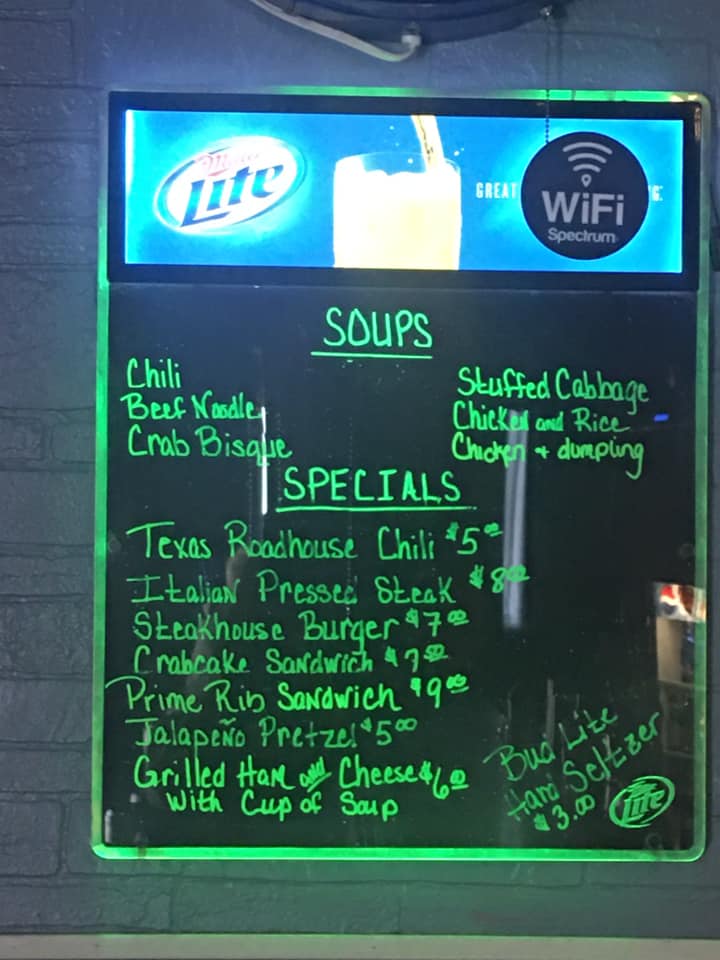 Miller
Lite
GREAT
WiFi
Spectrum
SOUPS
Chili
Beef Noodle
Crab Bisque
Stuffed Cabbage
Chicken and Rice
Chicken + dumpling
SPECIALS
Texas Roadhouse Chili $5.00
Italian Pressed Steak $8.00
Steakhouse Burger $7.00
Crabcake Sandwich
Prime Rib Sandwich $9.00
Jalapeño Pretzel $5.00
Grilled Ham and Cheese $6.00
With Cup of Soup
Bud Lite
Hard Seltzer
$3.00
Lite